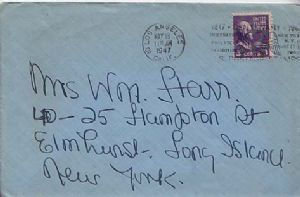 LOS ANGELES
1947
CALIF.
Mrs Wm. Starr.
40-25 Hampton St
Elmhurst - Long Island.
New York.